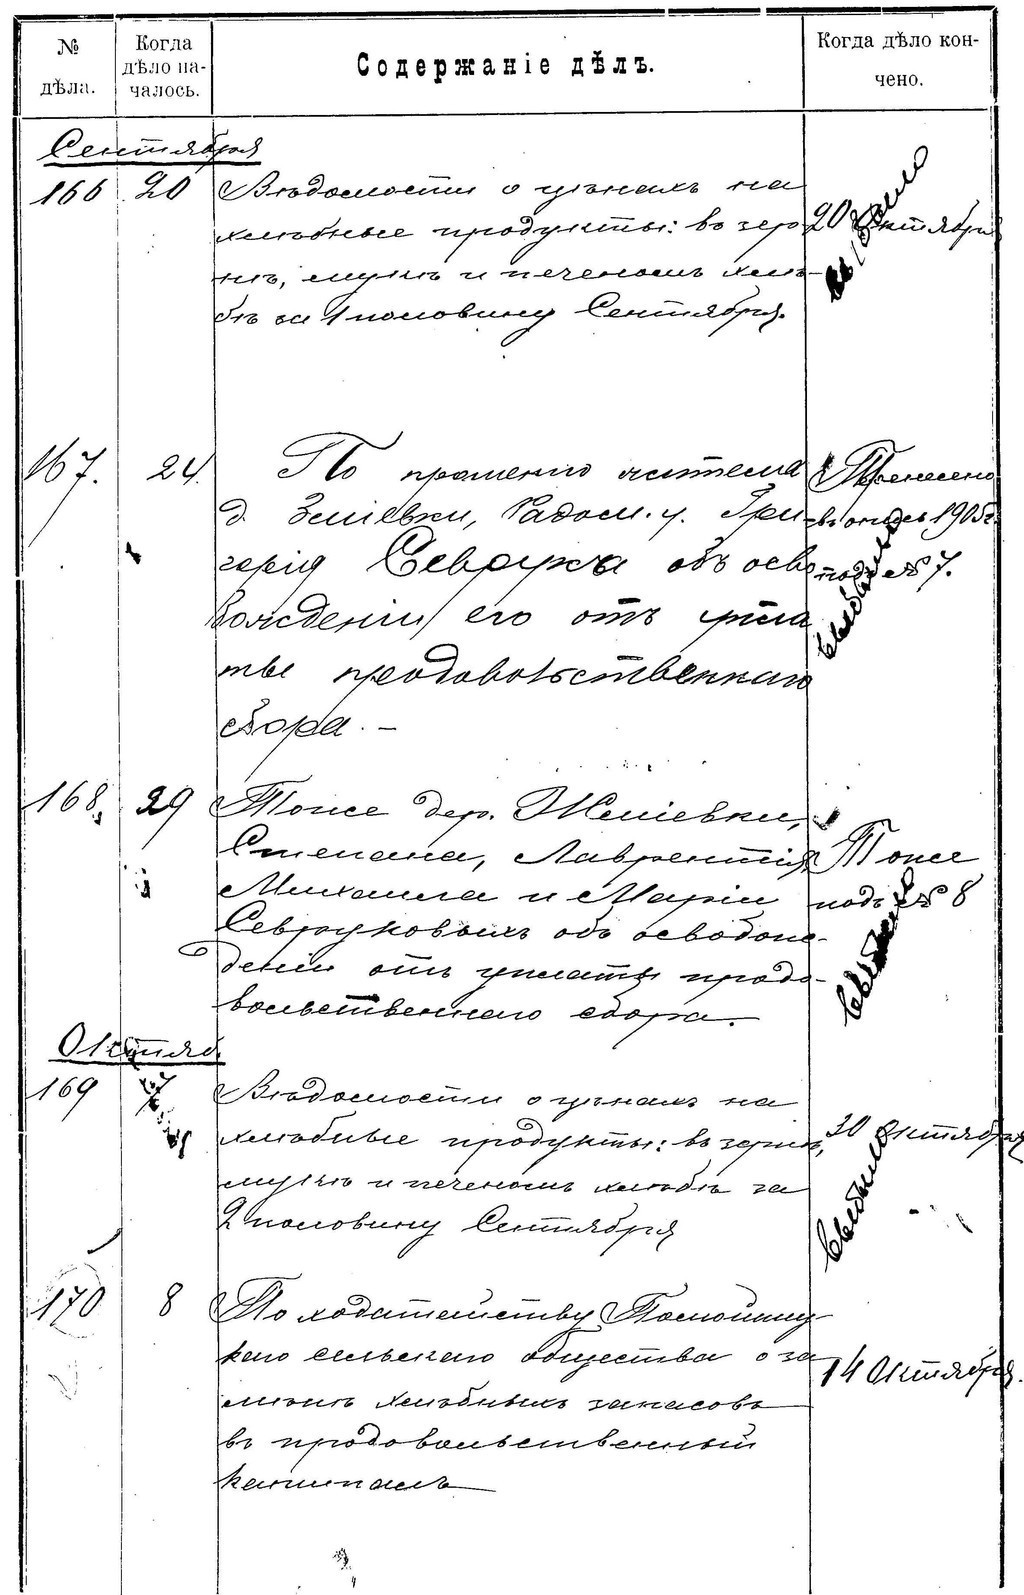 № дѣла.
Когда дѣло началось.
Содержаніе дѣлъ.
Когда дѣло кончено.
Сентября
166 20 Вѣдомости о цѣнахъ на
хлѣбные продукты: въ зер-
нѣ, мукѣ и печеномъ хлѣ-
бѣ за 1 половину Сентября.
20 Октября
167. 24. По прошенію жителя
д. Зміевки, Радом. у. Гри-
горія Севрука объ осво
вожденіи его отъ упла
ты продовольственнаго
сбора. —
Пренесено
въ опись 1905 г.
подъ № 7.
168. 29 Тоже дер. Жміевки,
Степана, Лаврентія,
Михаила и Маріи
Севруковыхъ объ освобож-
деніи отъ уплаты продо-
вольственнаго сбора.
Тоже
подъ № 8
Октяб.
169 7 Вѣдомости о цѣнахъ на
хлѣбные продукты: въ зернѣ,
мукѣ и печеномъ хлѣбѣ за
2 половину Сентября
30 Октября
170 8 По ходатайству
каго сельскаго общества о за
мѣнѣ хлѣбныхъ запасовъ
въ продовольственный
капиталъ
14 Октября.